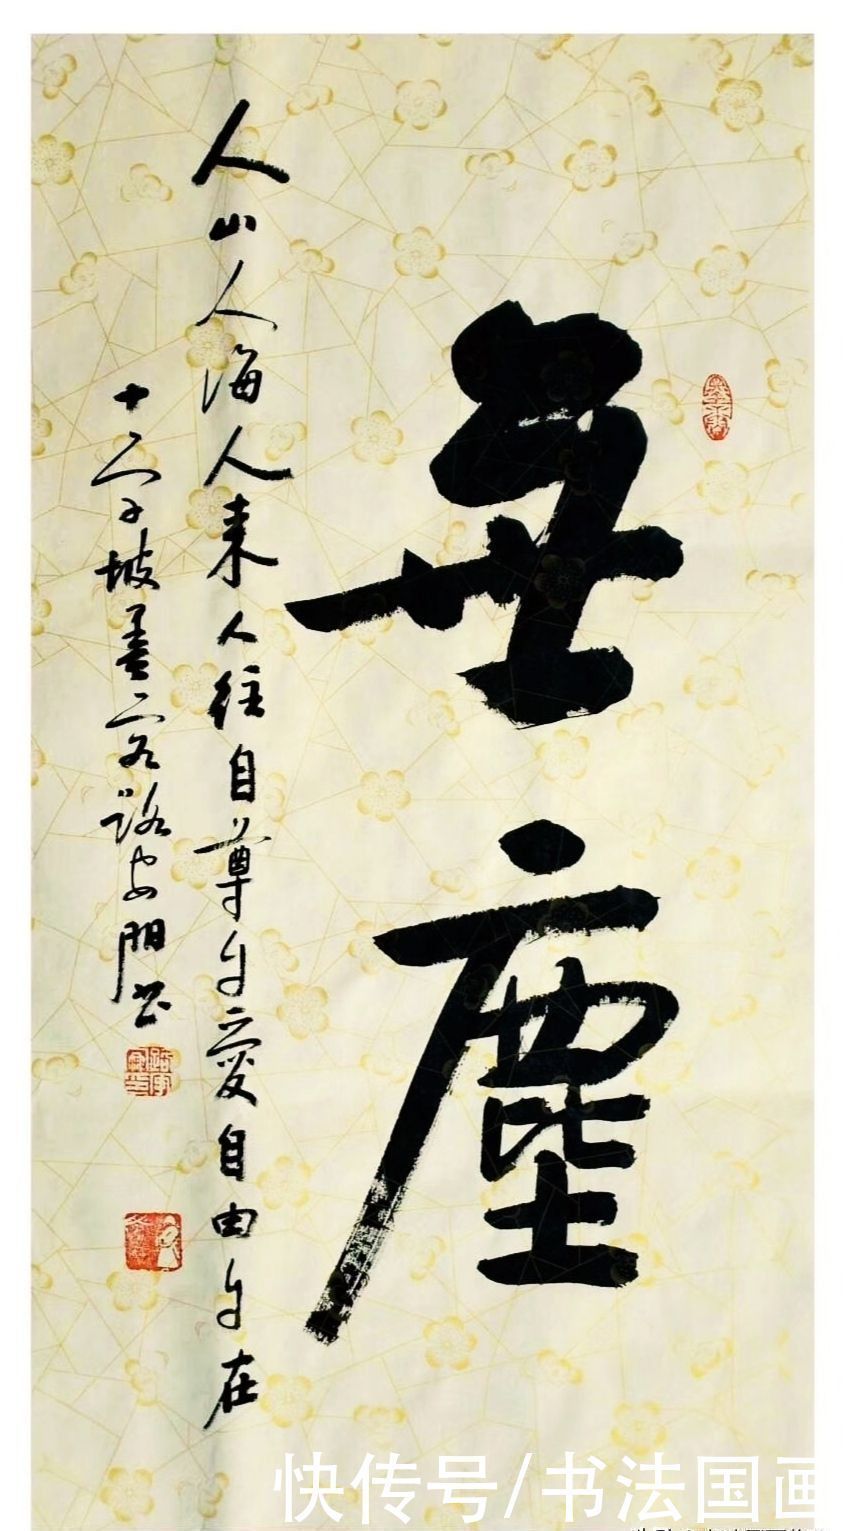 無塵
人山人海人來人往自尊自愛自由自在
十八子坡墨客路安門書
快传号/书法国画